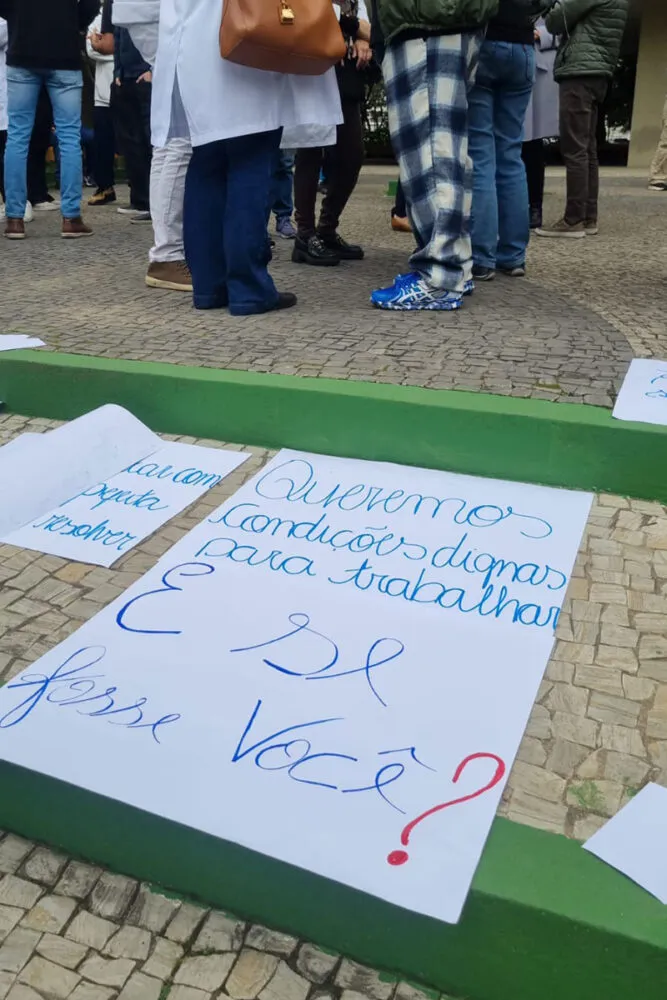 tar com
pepita
resolver
Queremos
condições dignas
para trabalhar
E se
fosse você?